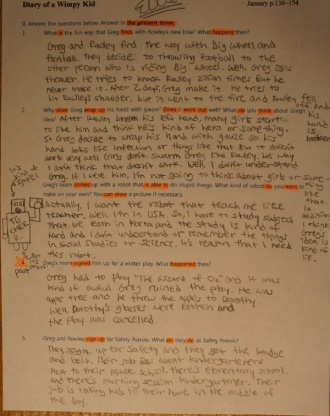 Diary of a Wimpy Kid
January p.136-154
Answer the questions below. Answer in the present tense.
1. What is the fun way that Greg finds with Rowley's new bike? What happens then?
Greg and Rowley find the way with Big wheel and
football. They decide to throwing football to the
other person who is riding Big wheel. Well, Greg is a
thrower. He tries to knock Rowley zillion times but he
never make it. After 2 days, Greg make it. He tries to
hit Rowley's shoulder, but it went to the tire and Rowley fell
off and his hand is broken
2. Why does Greg wrap up his hand with gauze? Does it work out well? What do you think about Greg's
idea?
After Rowley break his left hand, many girls start
to like him and think he's kind of hero or something.
So Greg decide to wrap his hand with gauze so his
hand looks like infection or things like that. But it doesn't
work very well. Girls don't swarm Greg like Rowley.
I don't think that doesn't work. Well, I don't understand
Greg. If I were him, I'm not going to think about girls or
things like that. In addition, I think Greg's idea is kind of lie.
3. Greg's mom comes up with a robot that is able to do stupid things. What kind of robot do you want to
make on your own? You can draw a picture if necessary.
Actually, I want the robot that teach me like
teacher. Well, I'm in USA. So, I have to study subject
that we learn in Korea and the study is kind of
hard and I don't understand or remember the things
in social studies or science. It's reason that I need
this robot.
4. Greg's mom signed him up for a winter play. What happened then?
Greg had to play "The Wizard of Oz" and it was
kind of awful. Greg ruined the play. He was
type tree and he threw the apples to Dorothy.
Well, Dorothy's glasses were broken and
the play was cancelled.
5. Greg and Rowley sign up for Safety Patrols. What do they do as Safety Patrols?
They sign up for Safety and they got the badge
and belt. Their job is about kindergartners.
Next to their middle school, there's elementary school
and there's morning session kindergartener. Their
job is taking kids to their home in the middle of
the day